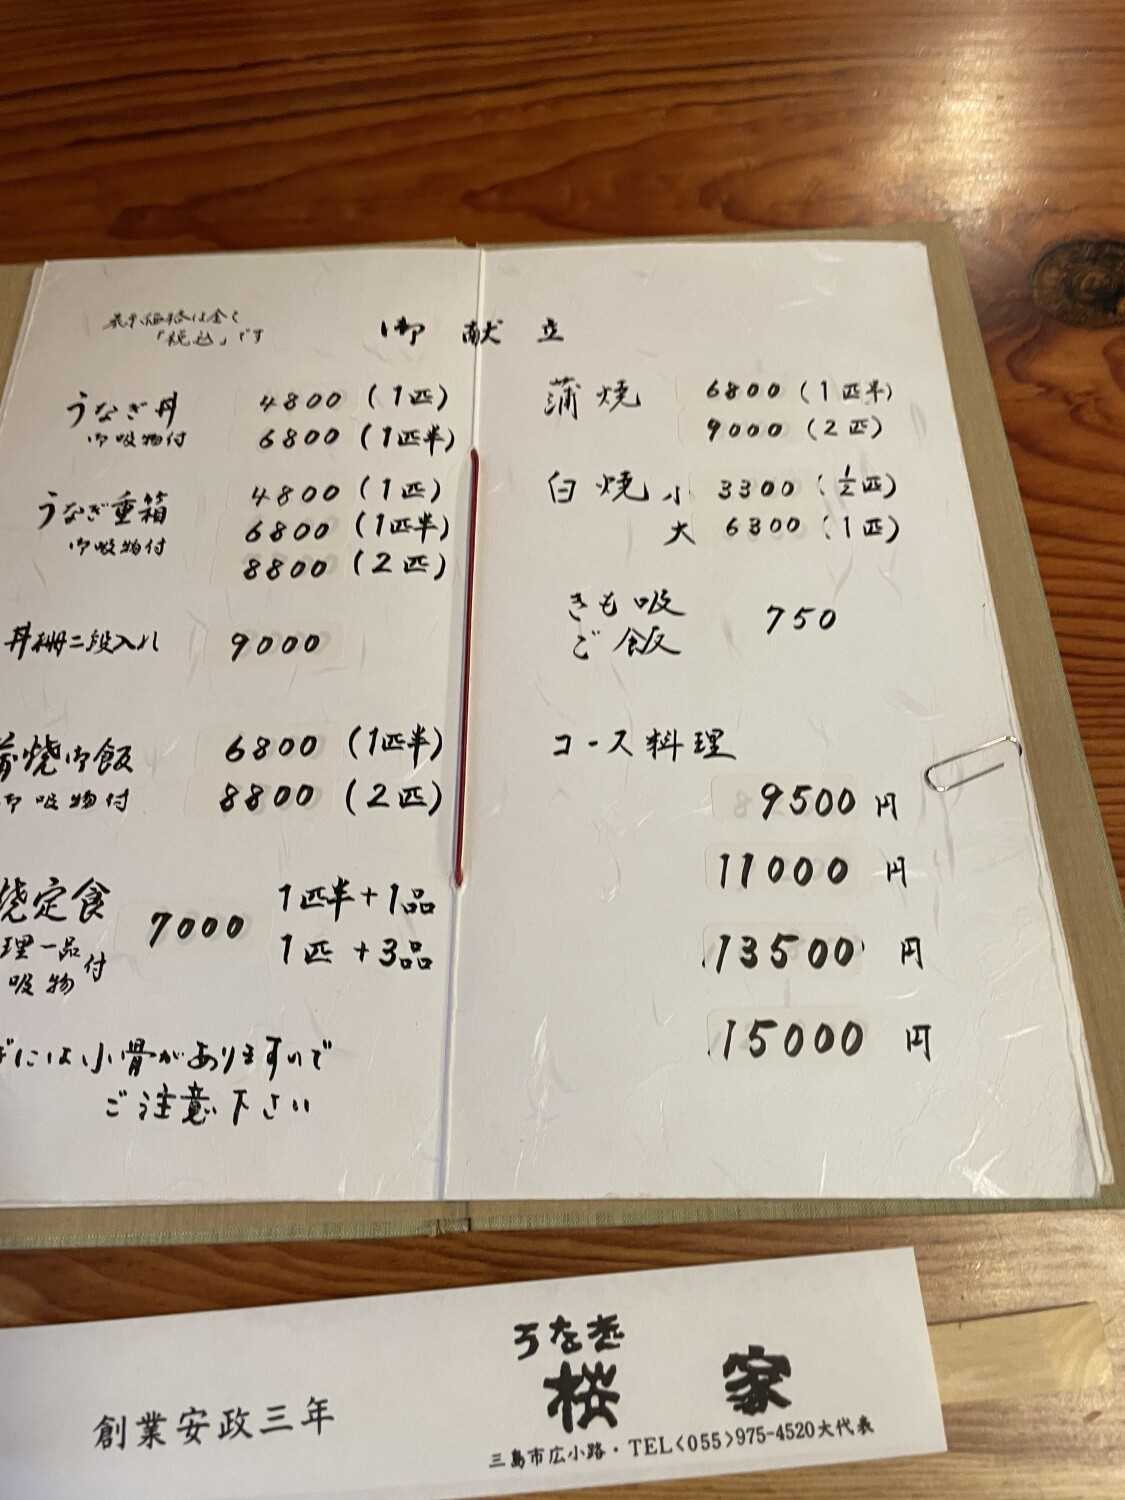 表示価格は全て
「税込」です
御 献 立
うなぎ丼 4800 (1匹)
御吸物付 6800 (1匹半)
うなぎ重箱 4800 (1匹)
御吸物付 6800 (1匹半)
8800 (2匹)
丼桶二段入れ 9000
蒲焼御飯 6800 (1匹半)
御吸物付 8800 (2匹)
焼定食 7000 1匹半+1品
理一品 1匹+3品
吸物付
ぎには小骨がありますので
ご注意下さい
蒲焼 6800 (1匹半)
9000 (2匹)
白焼 小 3300 (½匹)
大 6300 (1匹)
きも吸
ご飯 750
コース料理
9500 円
11000 円
13500 円
15000 円
創業安政三年
うなぎ
桜家
三島市広小路・TEL<055>975-4520大代表